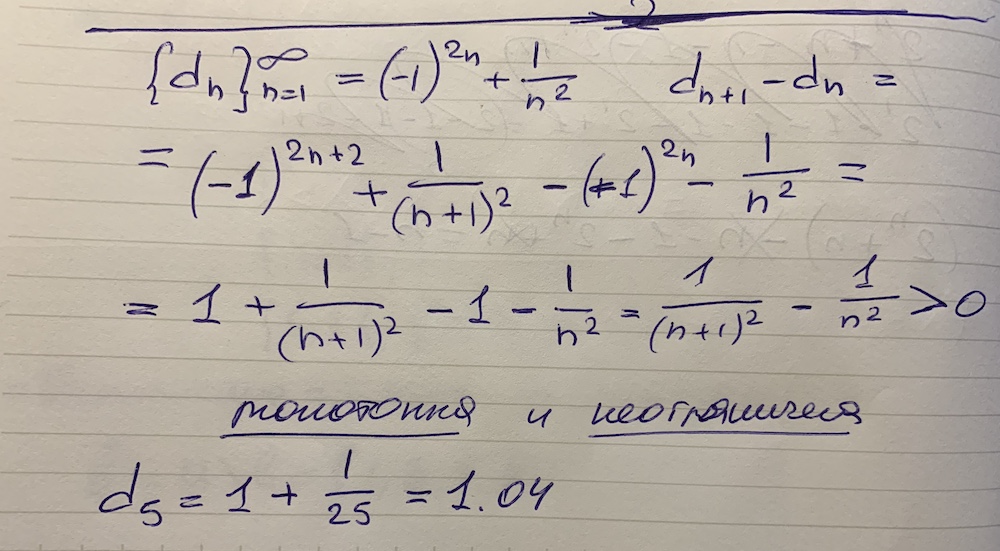 {dn}∞n=1 = (-1)^2n + 1/n² dn+1 - dn =
= (-1)^2n+2 + 1/(n+1)² - (-1)^2n - 1/n² =
= 1 + 1/(n+1)² - 1 - 1/n² = 1/(n+1)² - 1/n² > 0
монотонна и неограничена
d5 = 1 + 1/25 = 1.04